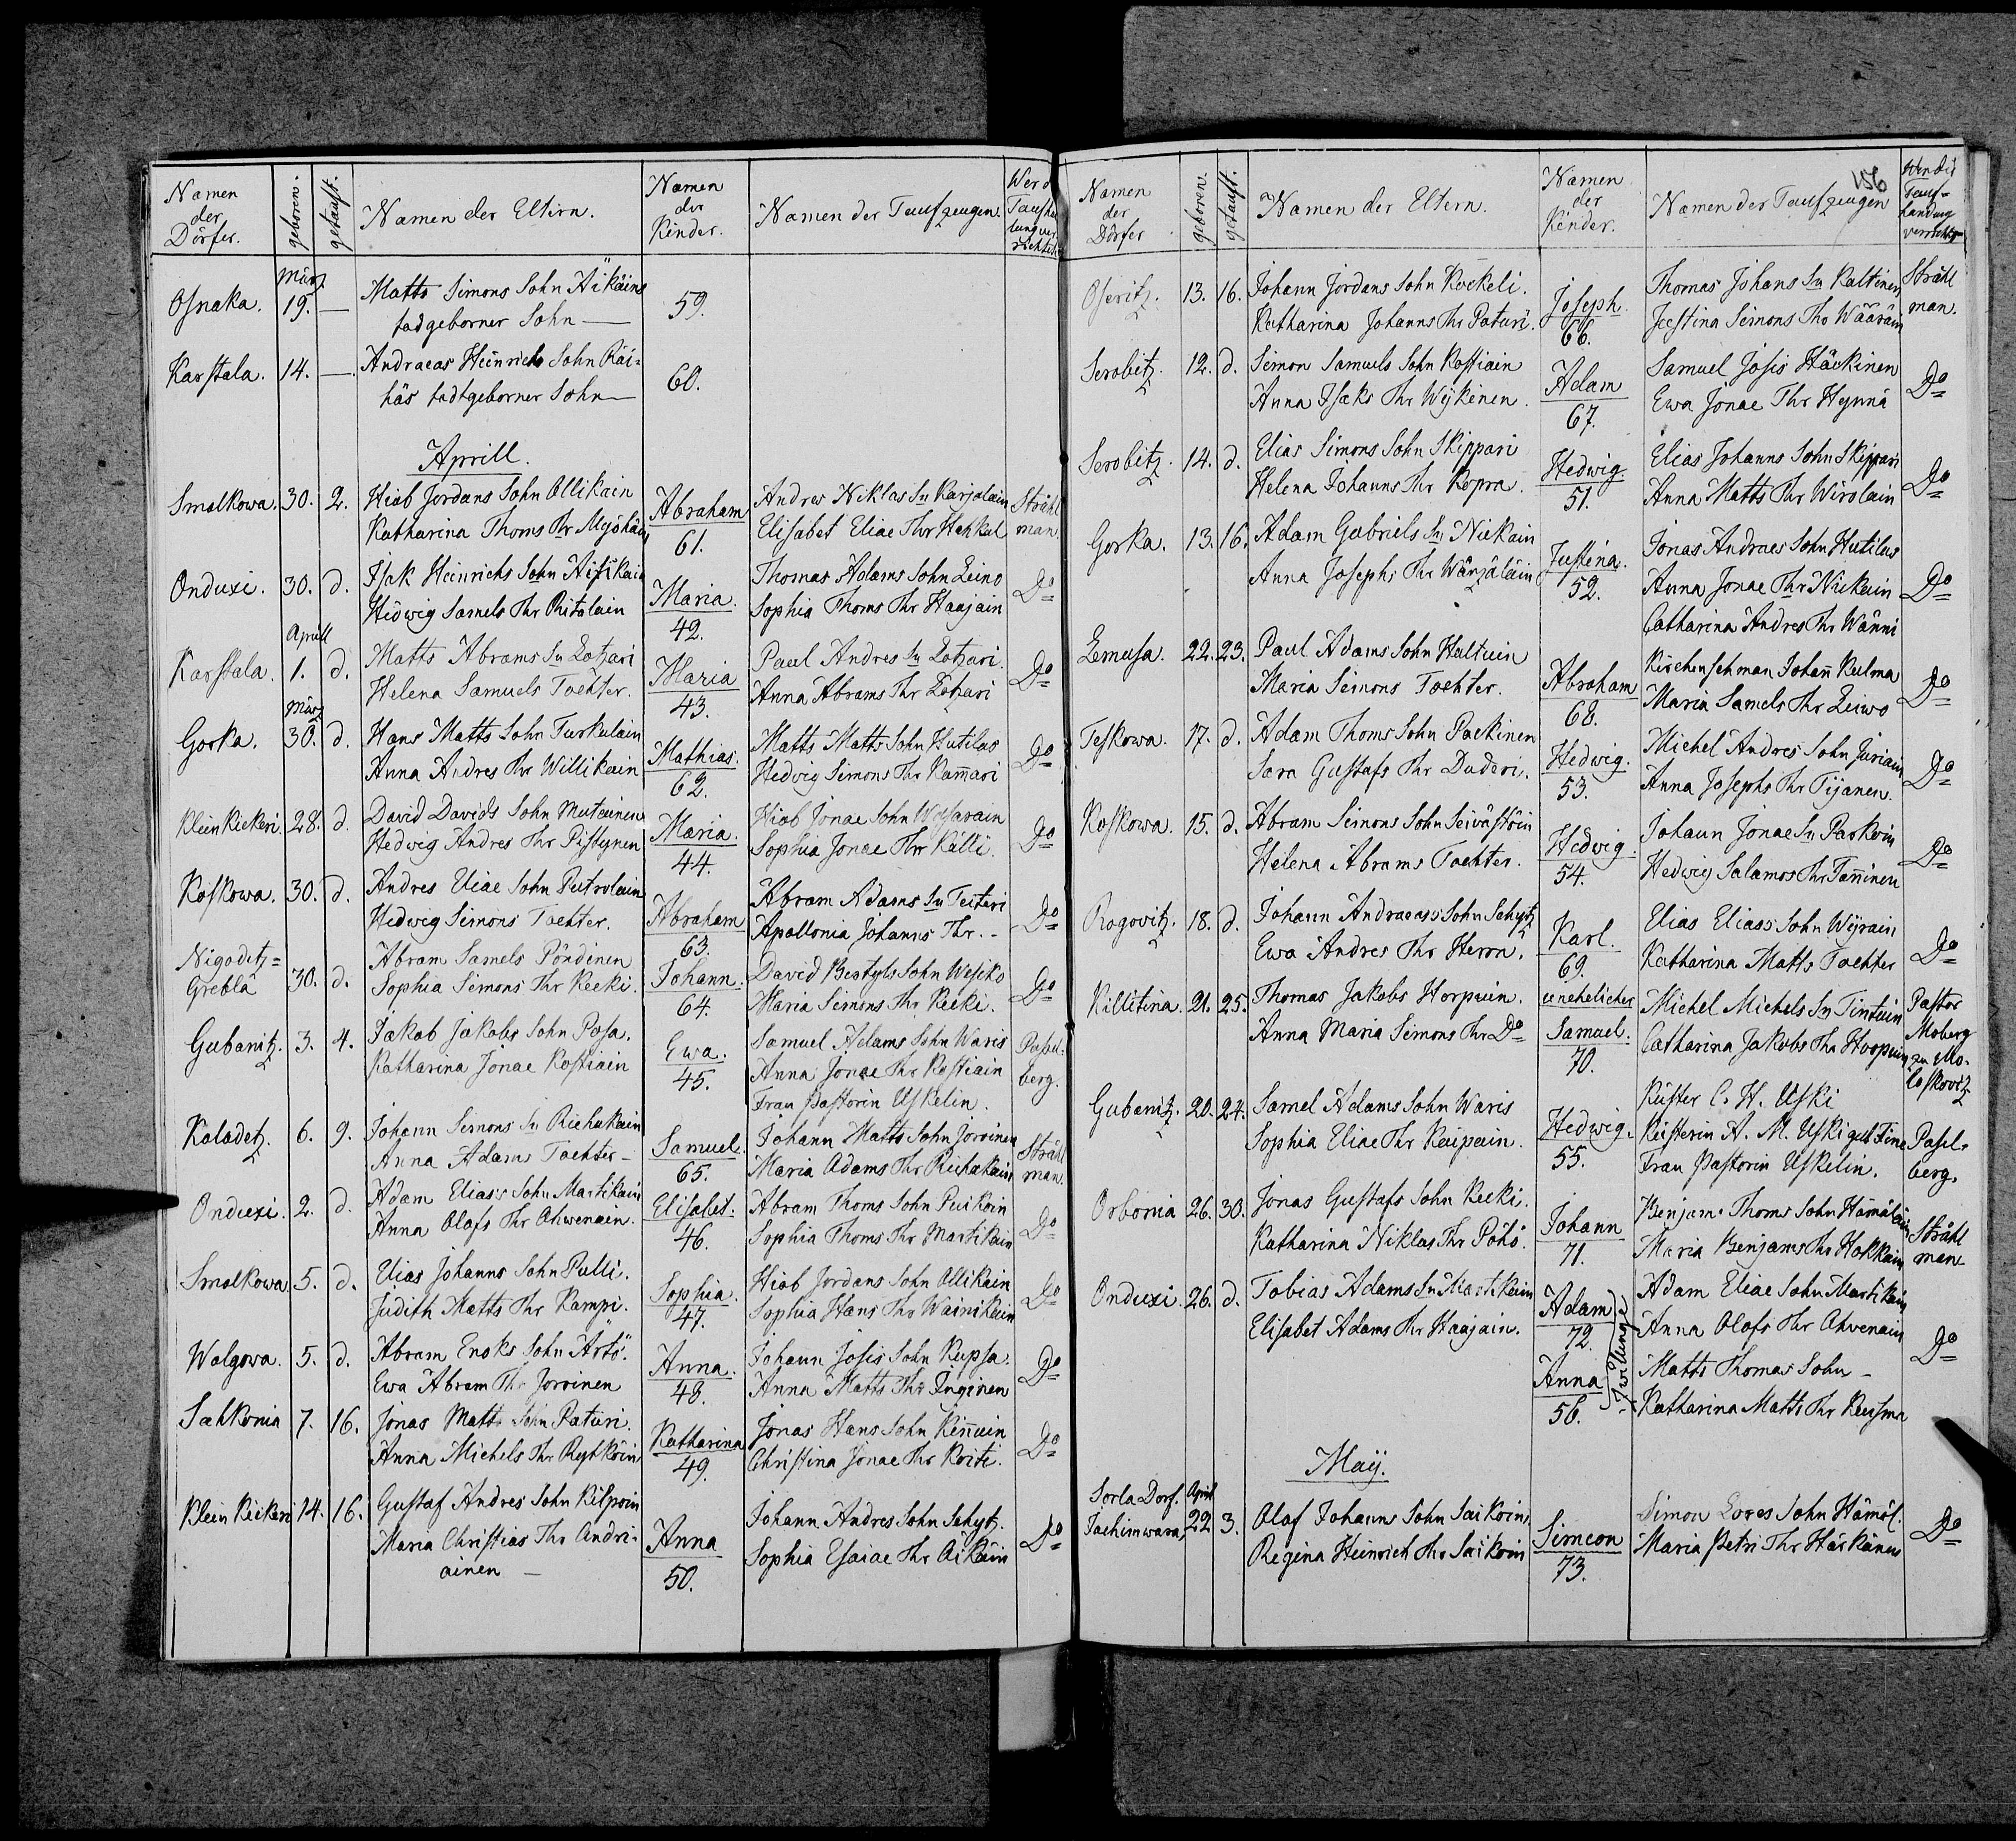 Namen der Dörfer. geboren. getauft. Namen der Eltern. Namen der Kinder. Namen der Taufzeugen.
März
Osnaka. 19. — Matts Simons Sohn Äikäin 59.
todgeborner Sohn —
Karstala. 14. — Andraeas Heinrichs Sohn Räi=
häs todtgeborner Sohn — 60.
Aprill.
Smolkowa. 30. 2. Hiob Jordans Sohn Ollikain Abraham Andres Niklas Sn Karjalain Stråhl
Katharina Thoms Thr Myöhän 61. Elisabet Eliae Thr Hekkal man.
Onduxi. 30. d. Isak Heinrichs Sohn Maria. Thomas Adams Sohn Leino Do
Hedwig Samels Thr Ritolain 42. Sophia Thoms Thr Haajain
Aprill
Karstala. 1. d. Matts Abrams Sn Lotzari Maria Paul Andres Sn Lotzari. Do
Helena Samuels Tochter. 43. Anna Abrams Thr Lotzari
März
Gorka. 30. d. Hans Matts Sohn Turkulain Mathias. Matts Matts Sohn Hutilas Do
Anna Andres Thr Willikain 62. Hedwig Simons Thr Kam̄ari
Klein Kickeri. 28. d. David Davids Sohn Mutainen Maria. Hiob Jonae Sohn Do
Hedwig Andres Thr Pistynen 44. Sophia Jonae Thr Källi.
Koskowa. 30. d. Andres Eliae Sohn Putrolain Abraham Abram Adams Sn Teiteri Do
Hedwig Simons Tochter. 63. Apollonia Johanns Thr. -
Nigoditz=
Grebla 30. d. Abram Samels Pöndinen Johann. David Bertyls Sohn Wesiko Do
Sophia Simons Thr Keeki. 64. Maria Simons Thr Keeki.
Gubanitz. 3. 4. Jakob Jakobs Sohn Posa. Ewa. Samuel Adams Sohn Waris
Katharina Jonae Kostiain 45. Anna Jonae Thr Kostiain berg.
Frau Pastorin Uskelin.
Koladetz. 6. 9. Johann Simons Sn Riehakain Samuel. Johann Matts Sohn Joroinen Stråhl
Anna Adams Tochter - 65. Maria Adams Thr Riehakain man.
Onduxi. 2. d. Adam Eliass Sohn Martikain Elisabet. Abram Thoms Sohn Puikoin Do
Anna Olofs Thr Ahwenain. 46. Sophia Thoms Thr Martikain
Smolkowa 5. d. Elias Johanns Sohn Pulli. Sophia. Hiob Jordans Sohn Ollikain Do
Judith Matts Thr Kampi. 47. Sophia Hans Thr Wainikain
Wolgowa. 5. d. Abram Enoks Sohn Ärtö. Anna. Johann Josis Sohn Kupsa. Do
Ewa Abram Thr Joroinen 48. Anna Matts Thr Inginen
Sahkonia 7. 16. Jonas Matts Sohn Paturi. Katharina Jonas Hans Sohn Kin̄uin Do
Anna Michels Thr Rytköin 49. Christina Jonae Thr Koiti.
Klein Kickeri 14. 16. Gustaf Andres Sohn Kilpoin Anna Johann Andres Sohn Schytz. Do
Maria Christias Thr Andri= 50. Sophia Esaiae Thr Aikäin
ainen —
156
Namen der Dörfer geboren. getauft. Namen der Eltern. Namen der Kinder. Namen der Taufzeugen Wer die Tauf= handung verrichtet
Oseritz. 13. 16. Johann Jordans Sohn Kockeli. Joseph. Thomas Johans Sn Kaltinen Stråhl
Katharina Johanns Thr Paturi. 66. Justina Simons Thr Wääräin man.
Serobitz. 12. d. Simon Samuels Sohn Kostiain Adam Samuel Josis Häckinen Do
Anna Isaks Thr Wijkenen. 67. Ewa Jonae Thr Hynnä
Serobitz. 14. d. Elias Simons Sohn Skippari Hedwig Elias Johanns Sohn Skippari Do
Helena Johanns Thr Kopra. 51. Anna Matts Thr Wirolain
Gorka. 13. 16. Adam Gabriels Sn Niekain Justina. Jonas Andraes Sohn Hutilas
Anna Josephs Thr Wänzäläin 52. Anna Jonae Thr Niekain Do
Catharina Andres Thr Wänni
Lemusa. 22. 23. Paul Adams Sohn Haltuin Abraham Kirchensehman Johan̄ Kulma Do
Maria Simons Tochter. 68. Maria Samels Thr Leiwo
Teskowa. 17. d. Adam Thoms Sohn Packinen Hedwig. Michel Andres Sohn Juriain Do
Sara Gustafs Thr Duderi. 53. Anna Josephs Thr Tijanen.
Koskowa. 15. d. Abram Simons Sohn Seivästöin Hedwig. Johann Jonae Sn Parkoin Do
Helena Abrams Tochter. 54. Hedwig Salamos Thr Tan̄inen
Rogovitz. 18. d. Johann Andraeass Sohn Schytz Karl. Elias Eliass Sohn Wijrain Do
Ewa Andres Thr Herron. 69. Katharina Matts Tochter
Killitina. 21. 25. Thomas Jakobs Horpuin. unehelicher Michel Michels Sn Tintuin Pastor
Anna Maria Simons Thr Do Samuel. Catharina Jakobs Thr Moberg
70. zu Mo=
loskovitz
Gubanitz. 20. 24. Samel Adams Sohn Waris Hedwig. Küster C. H. Uski
Sophia Eliae Thr Kaipain. 55. Küsterin A. M. Uski geb. Fine
Frau Pastorin Uskelin. berg.
Orbonia 26. 30. Jonas Gustafs Sohn Keeki. Johann Benjam: Thoms Sohn Hämäläin Stråhl
Katharina Niklas Thr Pöhö. 71. Maria Benjams Thr Hokkain man
Onduxi. 26. d. Tobias Adams Sn Martikain Adam Adam Eliae Sohn Martikain
Elisabet Adams Thr Haajain. 72. Anna Olofs Thr Ahvenain Do
Zwillinge
Anna Matts Thomas Sohn -
56. Katharina Matts Thr Kuisma
Maij.
Sorla Dorf. April
Jachimwara, 22. 3. Olof Johanns Sohn Saikoin, Simeon Simon Sohn Hämäl. Do
Regina Heinrich Thr Saikoin 73. Maria Petri Thr Härkänen